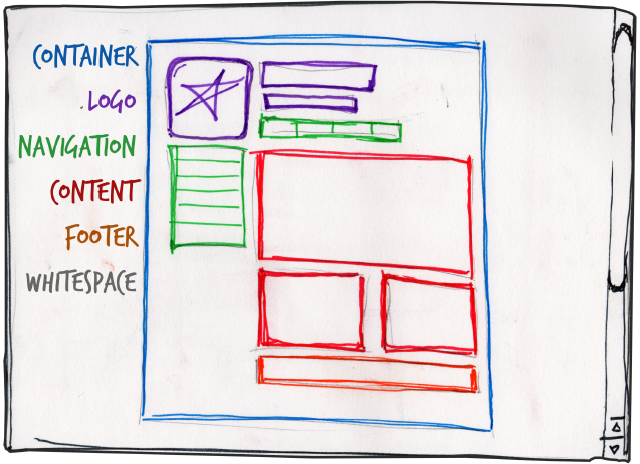 CONTAINER
LOGO
NAVIGATION
CONTENT
FOOTER
WHITESPACE